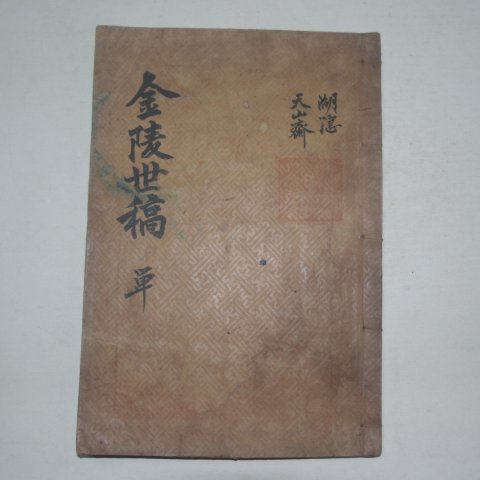 湖隱
天山齋
金陵世稿 單